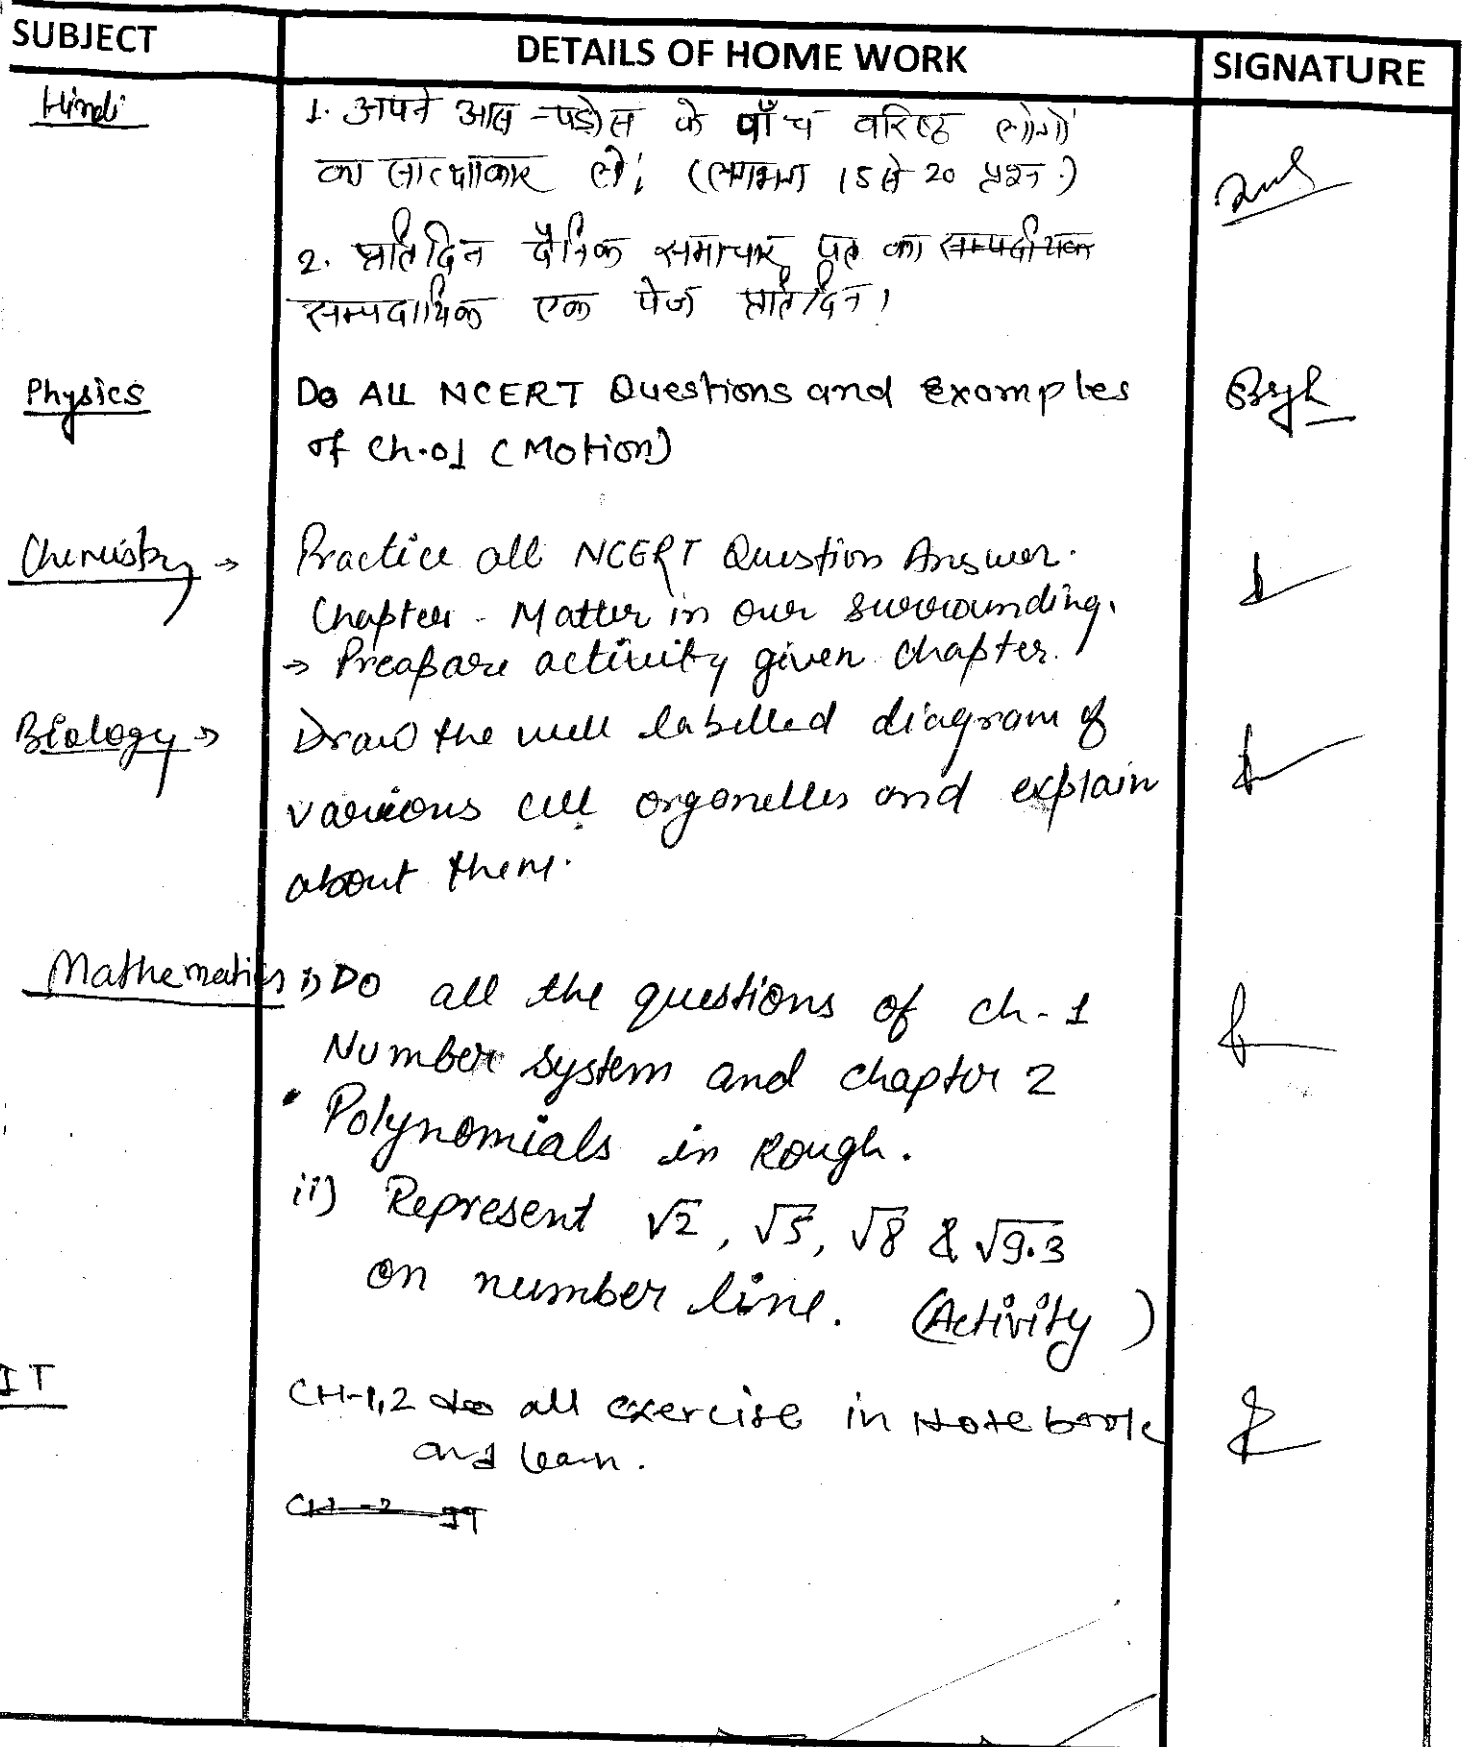 SUBJECT DETAILS OF HOME WORK SIGNATURE
Hindi 1. अपने आस-पड़ोस के पाँच वरिष्ठ लोगों
का साक्षात्कार लें; (लगभग 15 से 20 प्रश्न.)
2. प्रतिदिन दैनिक समाचार पत्र का
सम्पादायिक एक पेज प्रतिदिन।
Physics Do ALL NCERT Questions and Examples
of Ch.01 (Motion)
Chemistry → Practice all NCERT Question Answer.
Chapter - Matter in our surrounding.
→ Preapare activity given chapter.
Biology → Draw the well labelled diagram of
various cell organelles and explain
about them.
Mathematics i) DO all the questions of ch-1
Number system and chapter 2
• Polynomials in Rough.
ii) Represent √2, √5, √8 & √9.3
on number line. (Activity)
IT CH-1,2 do all exercise in Notebook
and learn.
CH-2 IT